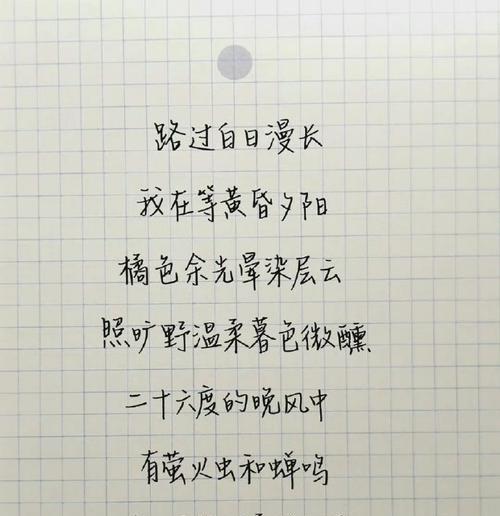 路过白日漫长
我在等黄昏夕阳
橘色余光晕染层云
照旷野温柔暮色微醺
二十六度的晚风中
有萤火虫和蝉鸣